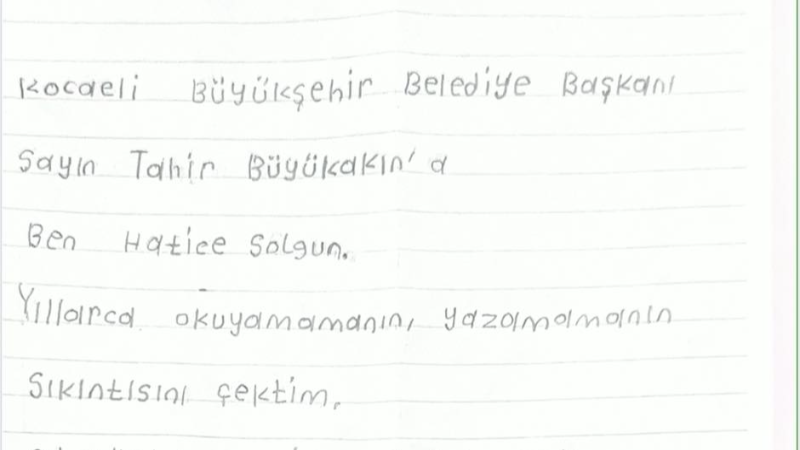 Kocaeli Büyükşehir Belediye Başkanı
Sayın Tahir Büyükakın'a
Ben Hatice Solgun.
Yıllarca okuyamamanın, yazamamanın
Sıkıntısını çektim.